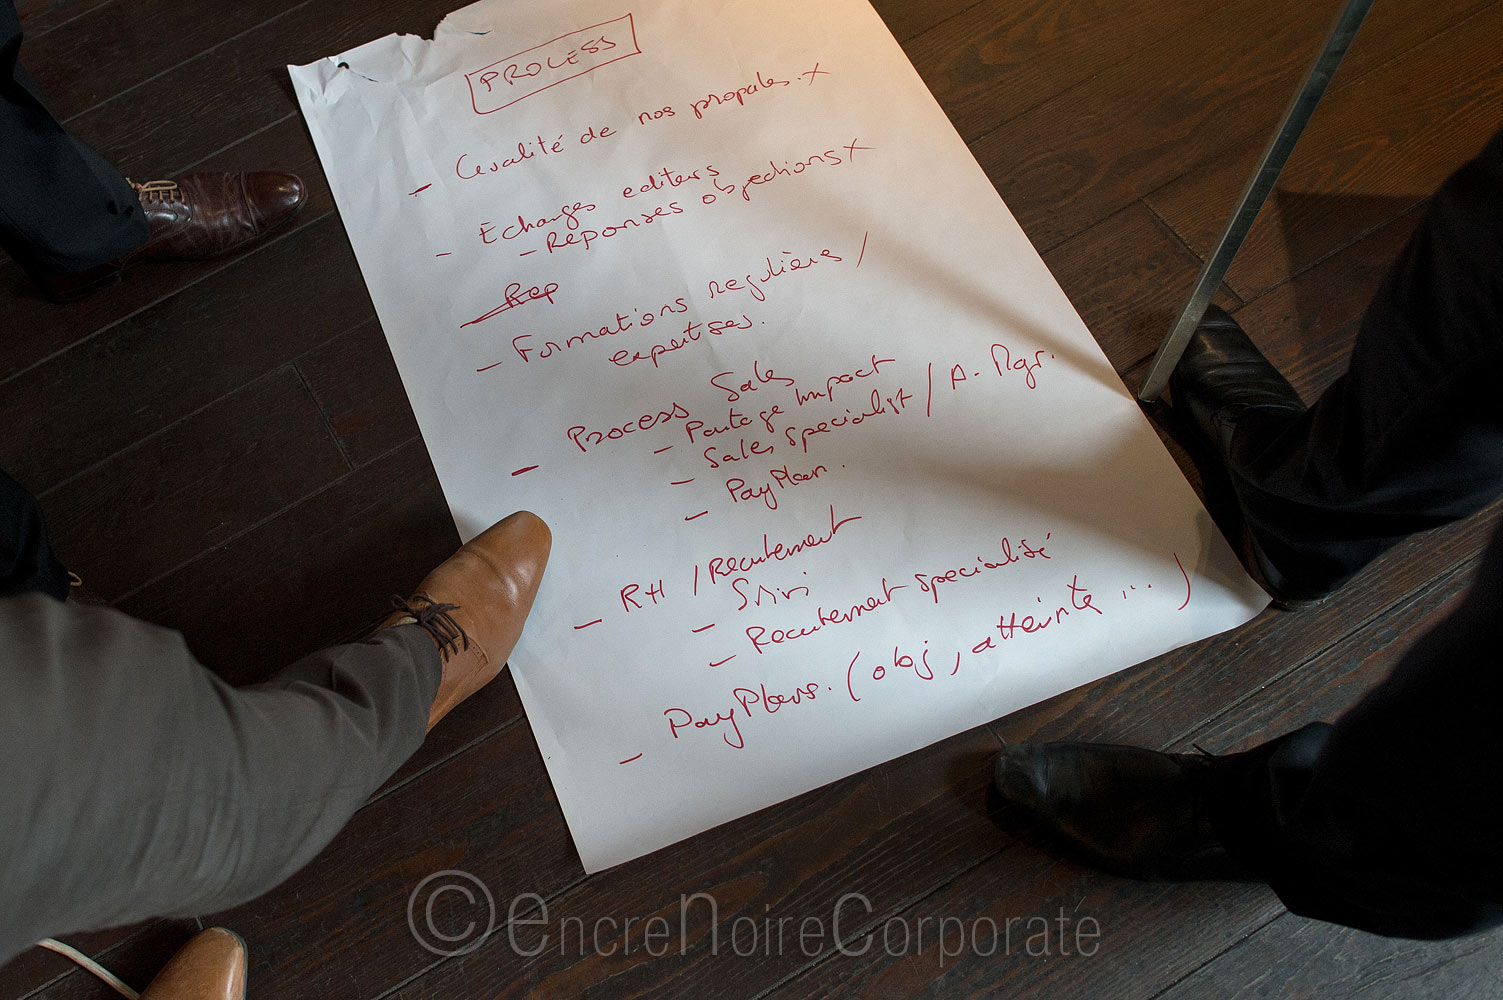 PROCESS
- Qualité de nos propales. x
- Echanges editeurs
- Réponses objections x
Rep
- Formations regulières /
expertises.
- Process Sales
- Partage impact
- Sales specialist / A. Mgr.
- Pay Plan.
- RH / Recrutement
- Recrutement specialisé
- Pay Plans. (obj, atteinte ...)
© EncreNoireCorporate